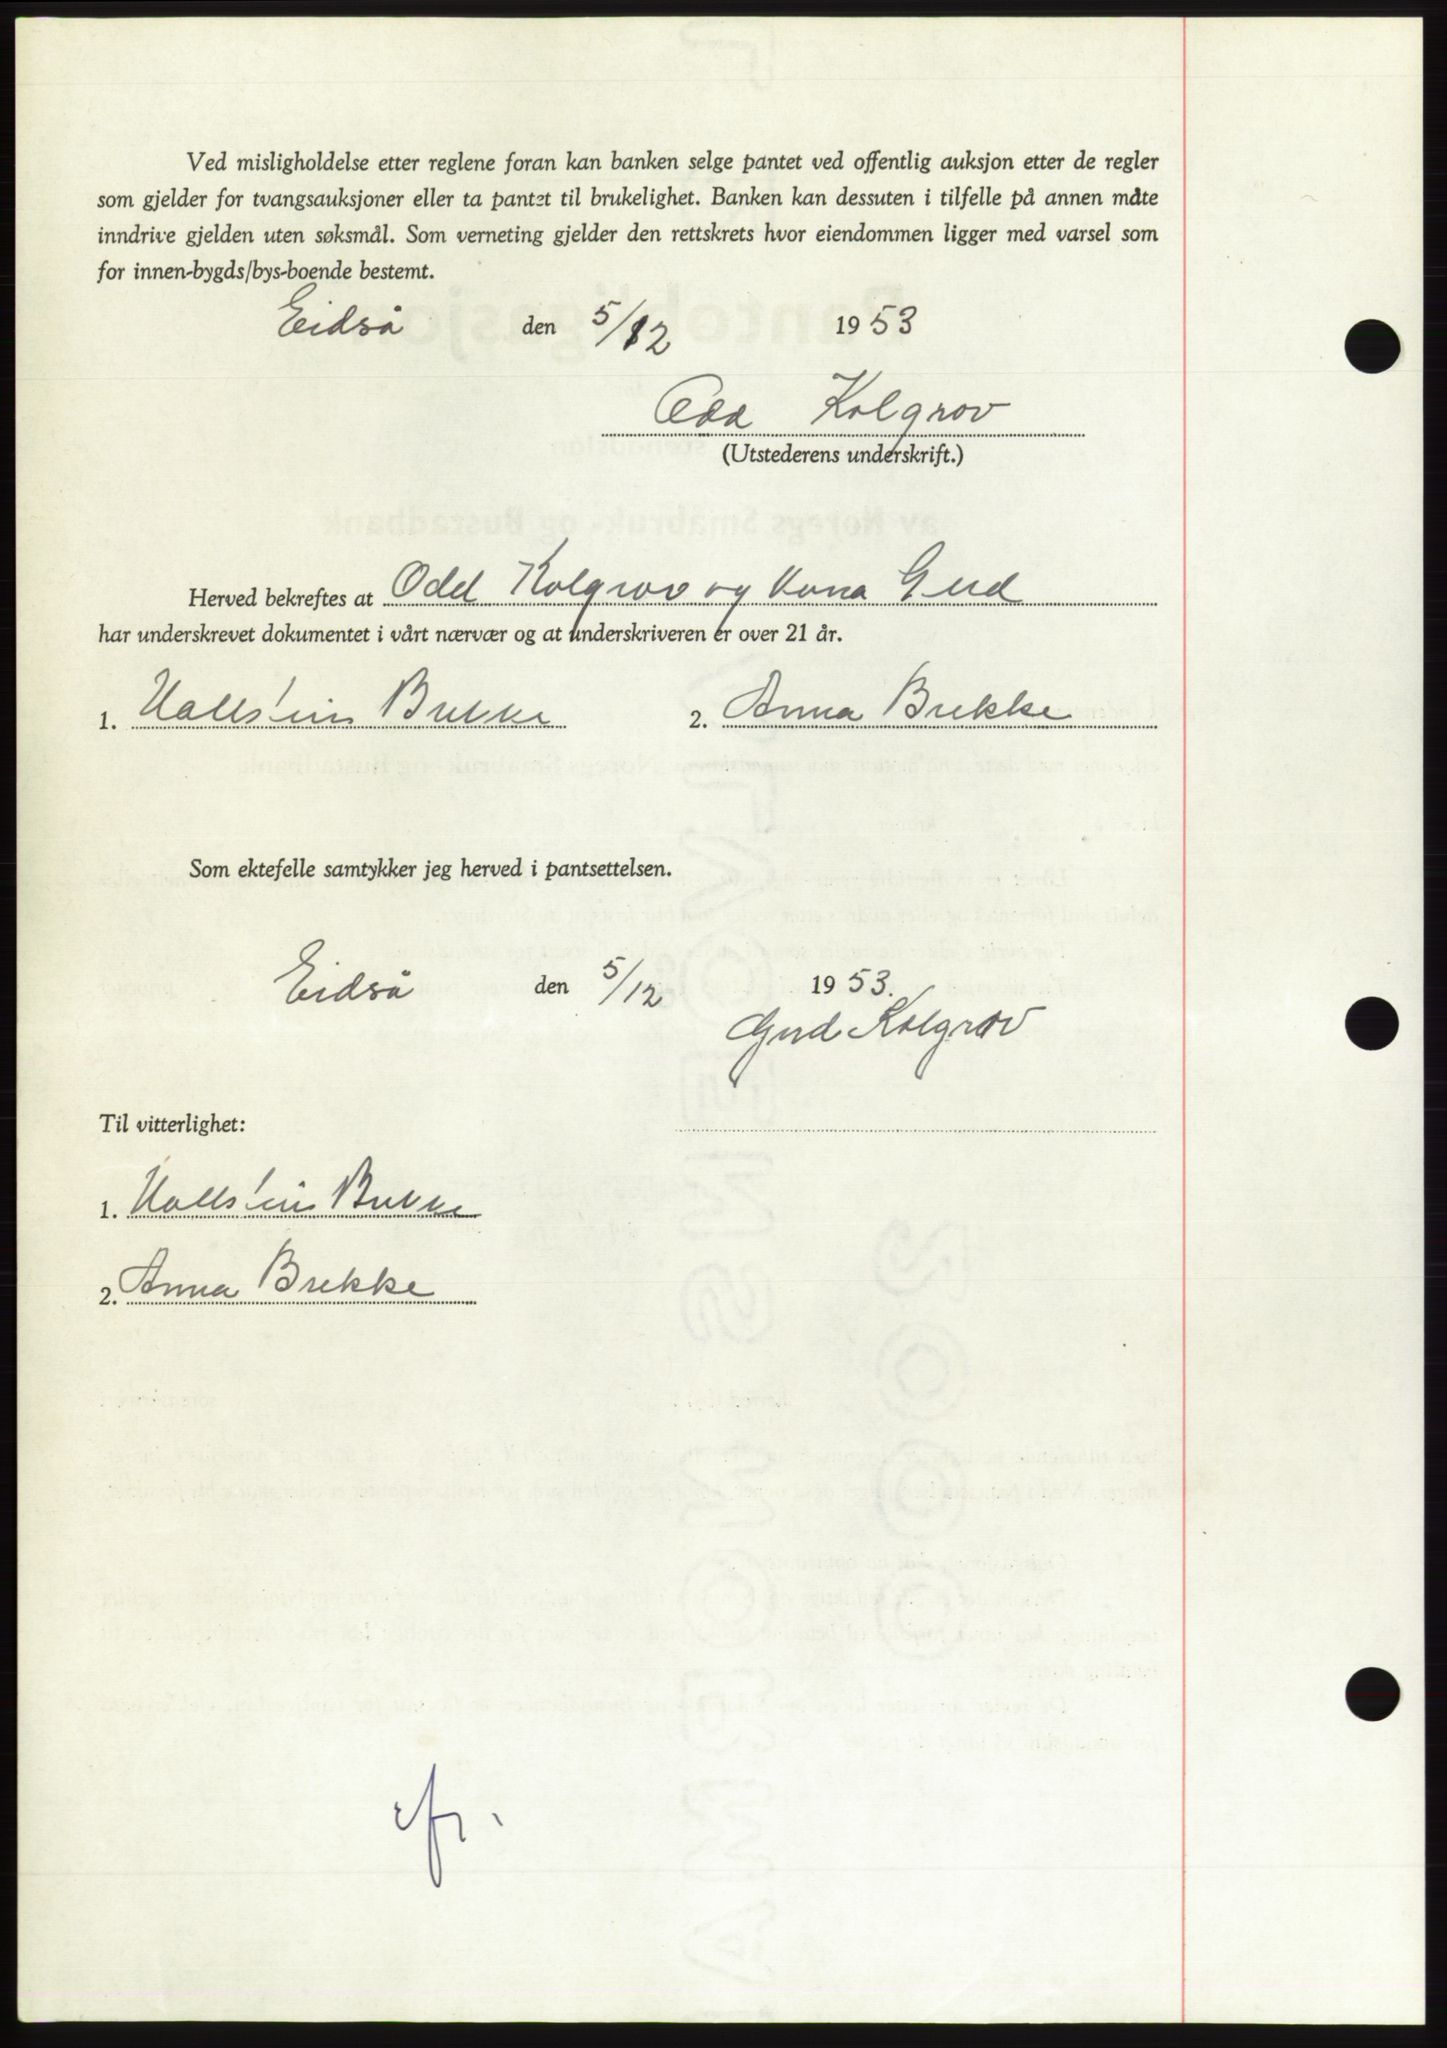 Ved misligholdelse etter reglene foran kan banken selge pantet ved offentlig auksjon etter de regler
som gjelder for tvangsauksjoner eller ta pantet til brukelighet. Banken kan dessuten i tilfelle på annen måte
inndrive gjelden uten søksmål. Som verneting gjelder den rettskrets hvor eiendommen ligger med varsel som
for innen-bygds/bys-boende bestemt.
Eidså den 5/12 1953
Odd Kolgrov
(Utstederens underskrift.)
Herved bekreftes at Odd Kolgrov og kona Gud
har underskrevet dokumentet i vårt nærvær og at underskriveren er over 21 år.
1. Hallstein Brekke 2. Anna Brekke
Som ektefelle samtykker jeg herved i pantsettelsen.
Eidså den 5/12 1953.
Gud Kolgrov
Til vitterlighet:
1. Hallstein Brekke
2. Anna Brekke